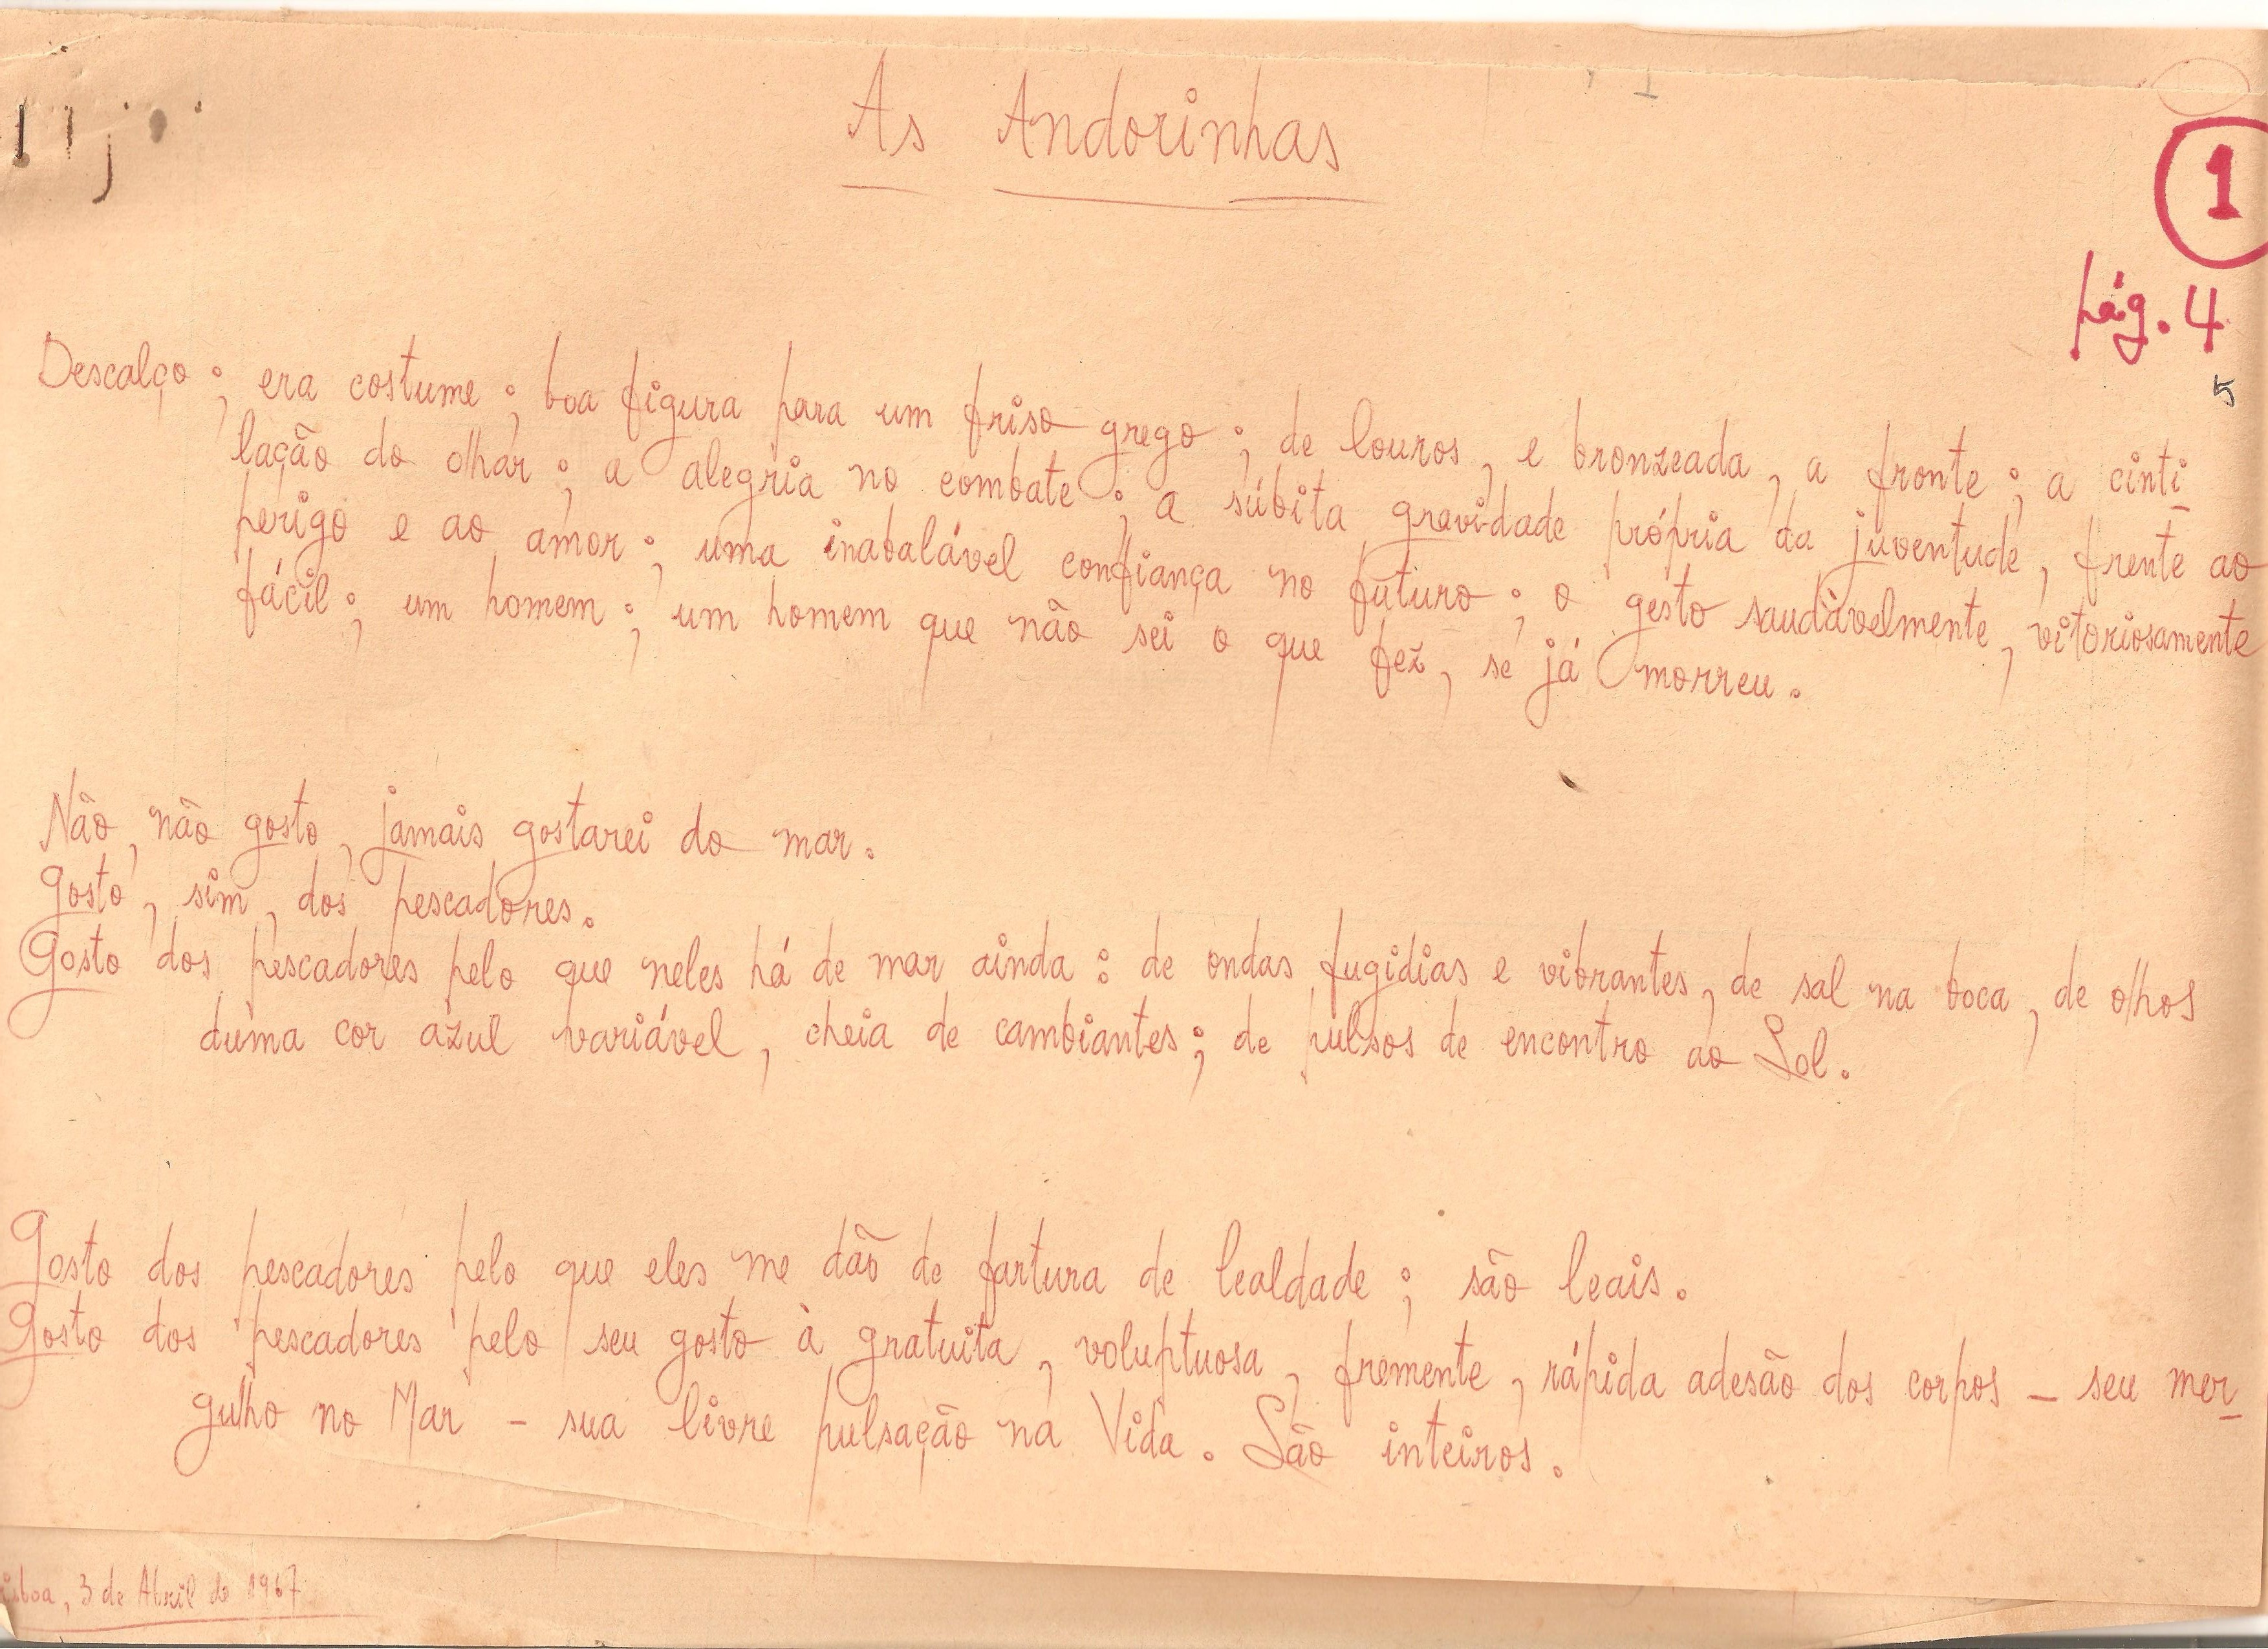 As Andorinhas
1
pág. 4
5
Descalço; era costume; boa figura para um friso grego; de louros, e bronzeada, a fronte; a cinti-
lação do olhar; a alegria no combate; a súbita gravidade própria da juventude, frente ao
perigo e ao amor; uma inabalável confiança no futuro; o gesto saudàvelmente, vitoriosamente
fácil; um homem; um homem que não sei o que fez, se já morreu.
Não, não gosto, jamais gostarei do mar.
Gosto, sim, dos pescadores.
Gosto dos pescadores pelo que neles há de mar ainda: de ondas fugidias e vibrantes, de sal na boca, de olhos
duma cor azul variável, cheia de cambiantes; de pulsos de encontro ao Sol.
Gosto dos pescadores pelo que eles me dão de fartura de lealdade; são leais.
Gosto dos pescadores pelo seu gosto à gratuita, voluptuosa, fremente, rápida adesão dos corpos – seu mer-
gulho no Mar – sua livre pulsação na Vida. São inteiros.
isboa, 3 de Abril de 1967